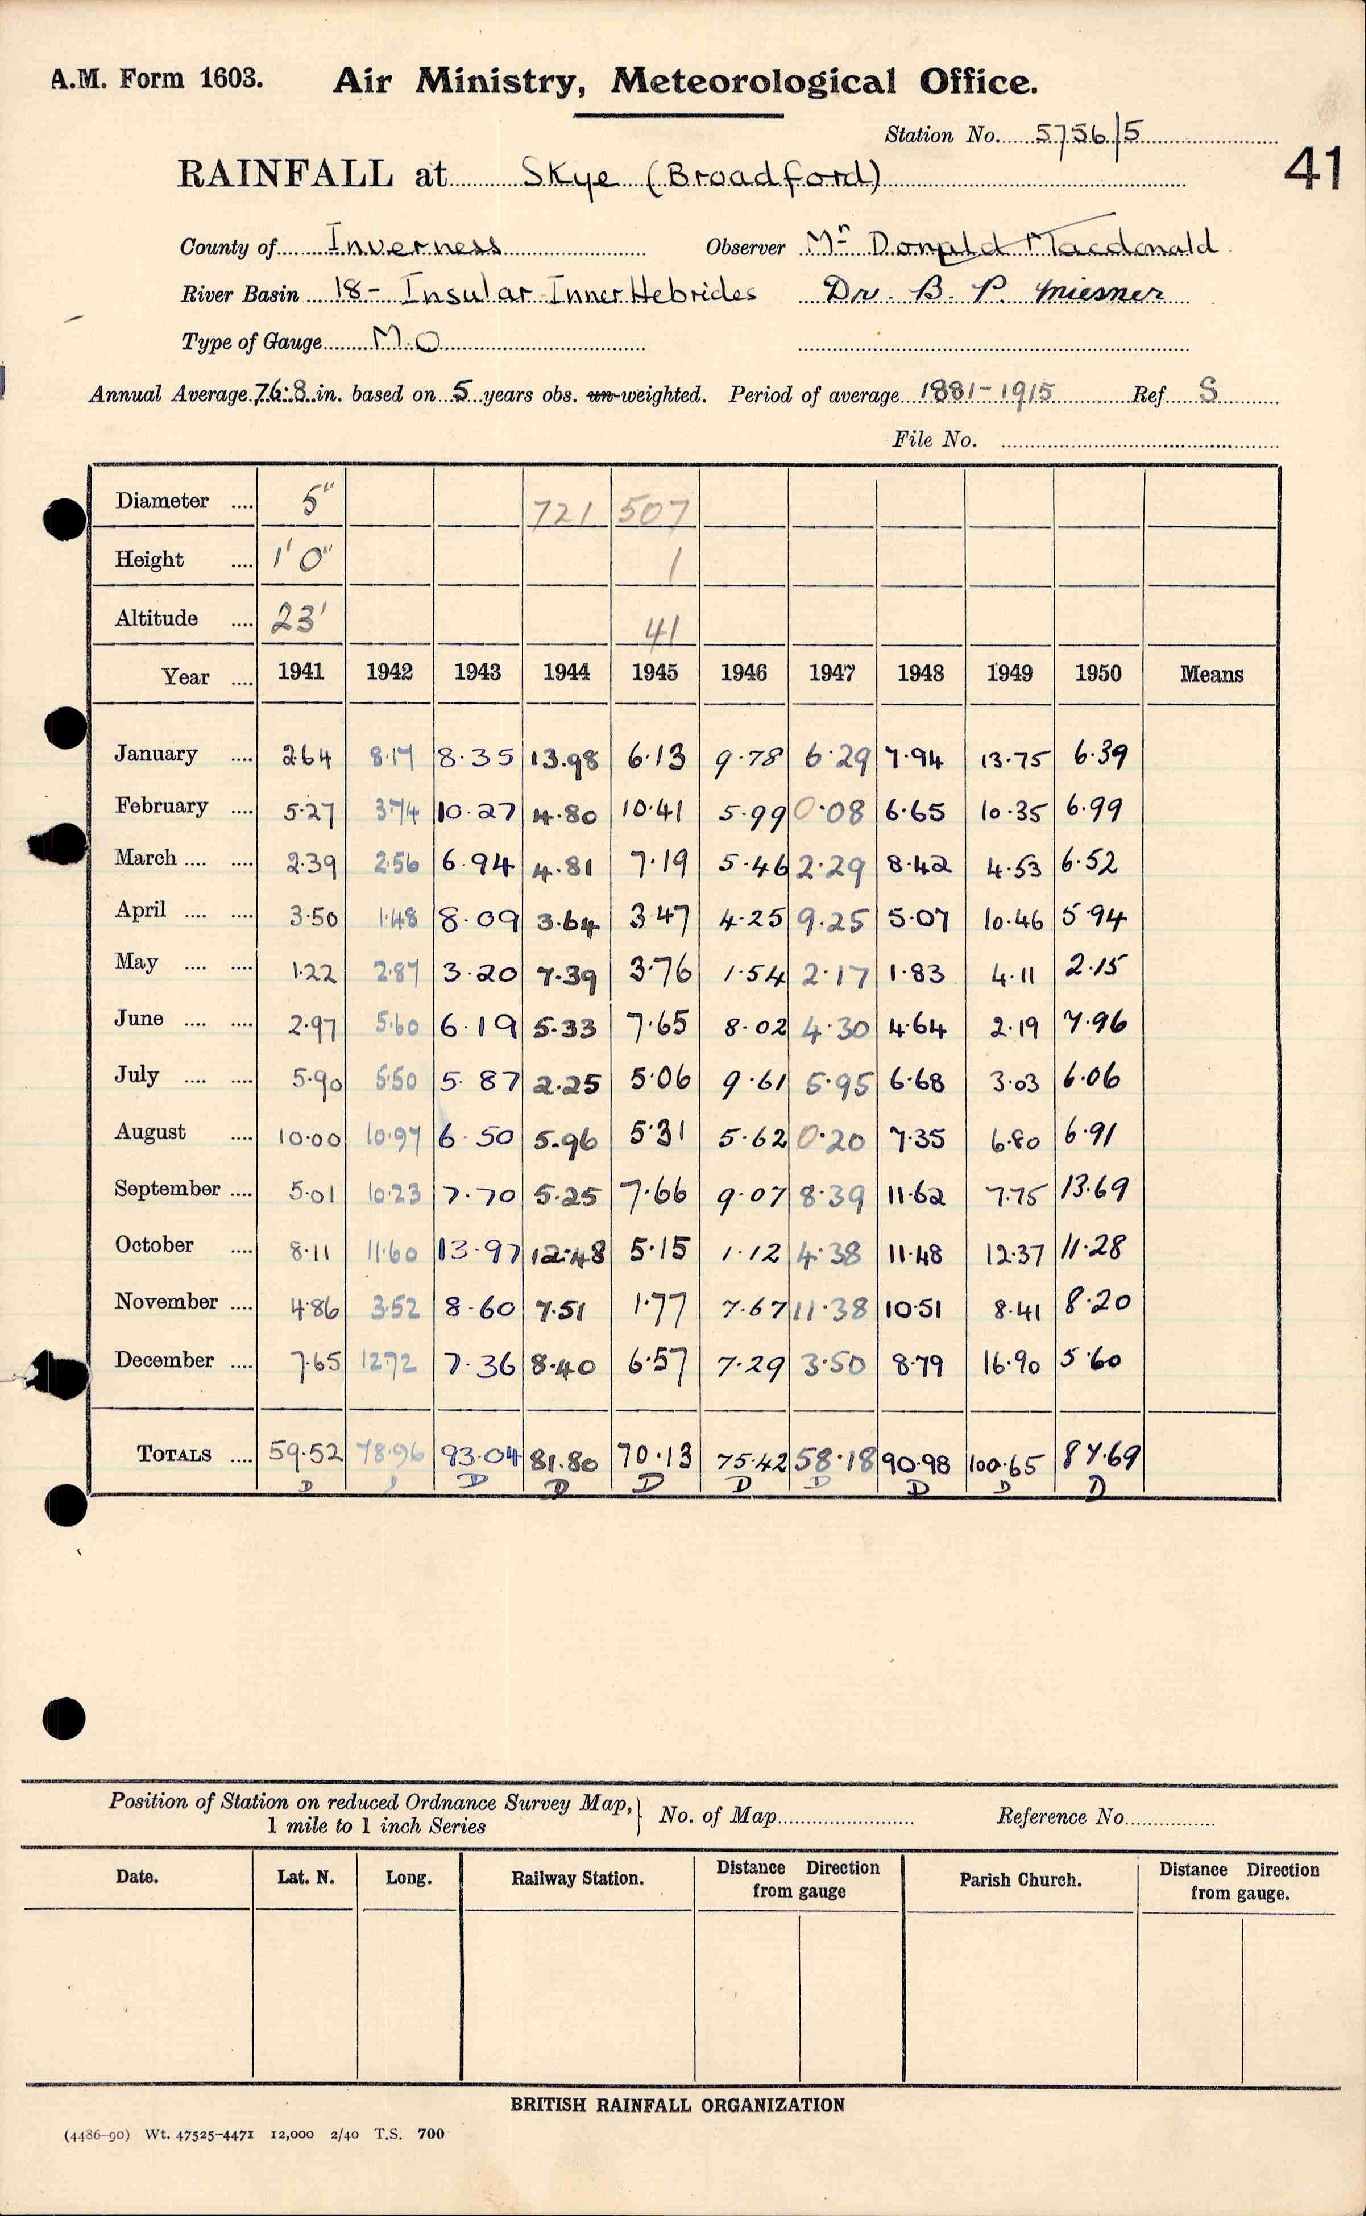 A.M. Form 1603. Air Ministry, Meteorological Office.
Station No. 5756/5
41
RAINFALL at Skye (Broadford)
County of Inverness Observer Mr Donald Macdonald
River Basin 18 - Insular Inner Hebrides Dr. B. P. Miesner
Type of Gauge M.O
Annual Average 76.8 in. based on 5 years obs. un-weighted. Period of average 1881-1915 Ref S
File No.
Diameter 5" 721 507
Height 1' 0" 1
Altitude 23' 41
Year 1941 1942 1943 1944 1945 1946 1947 1948 1949 1950 Means
January 2.64 8.17 8.35 13.98 6.13 9.78 6.29 7.94 13.75 6.39
February 5.27 3.74 10.27 4.80 10.41 5.99 0.08 6.65 10.35 6.99
March 2.39 2.56 6.94 4.81 7.19 5.46 2.29 8.42 4.53 6.52
April 3.50 1.48 8.09 3.64 3.47 4.25 9.25 5.07 10.46 5.94
May 1.22 2.87 3.20 7.39 3.76 1.54 2.17 1.83 4.11 2.15
June 2.97 5.60 6.19 5.33 7.65 8.02 4.30 4.64 2.19 7.96
July 5.90 5.50 5.87 2.25 5.06 9.61 5.95 6.68 3.03 6.06
August 10.00 10.97 6.50 5.96 5.31 5.62 0.20 7.35 6.80 6.91
September 5.01 10.23 7.70 5.25 7.66 9.07 8.39 11.62 7.75 13.69
October 8.11 11.60 13.97 12.48 5.15 1.12 4.38 11.48 12.37 11.28
November 4.86 3.52 8.60 7.51 1.77 7.67 11.38 10.51 8.41 8.20
December 7.65 12.72 7.36 8.40 6.57 7.29 3.50 8.79 16.90 5.60
TOTALS 59.52 78.96 93.04 81.80 70.13 75.42 58.18 90.98 100.65 87.69
D D D D D D D D D
Position of Station on reduced Ordnance Survey Map, 1 mile to 1 inch Series No. of Map Reference No.
Date. Lat. N. Long. Railway Station. Distance Direction from gauge Parish Church. Distance Direction from gauge.
BRITISH RAINFALL ORGANIZATION
(4486-90) Wt. 47525-4471 12,000 2/40 T.S. 700